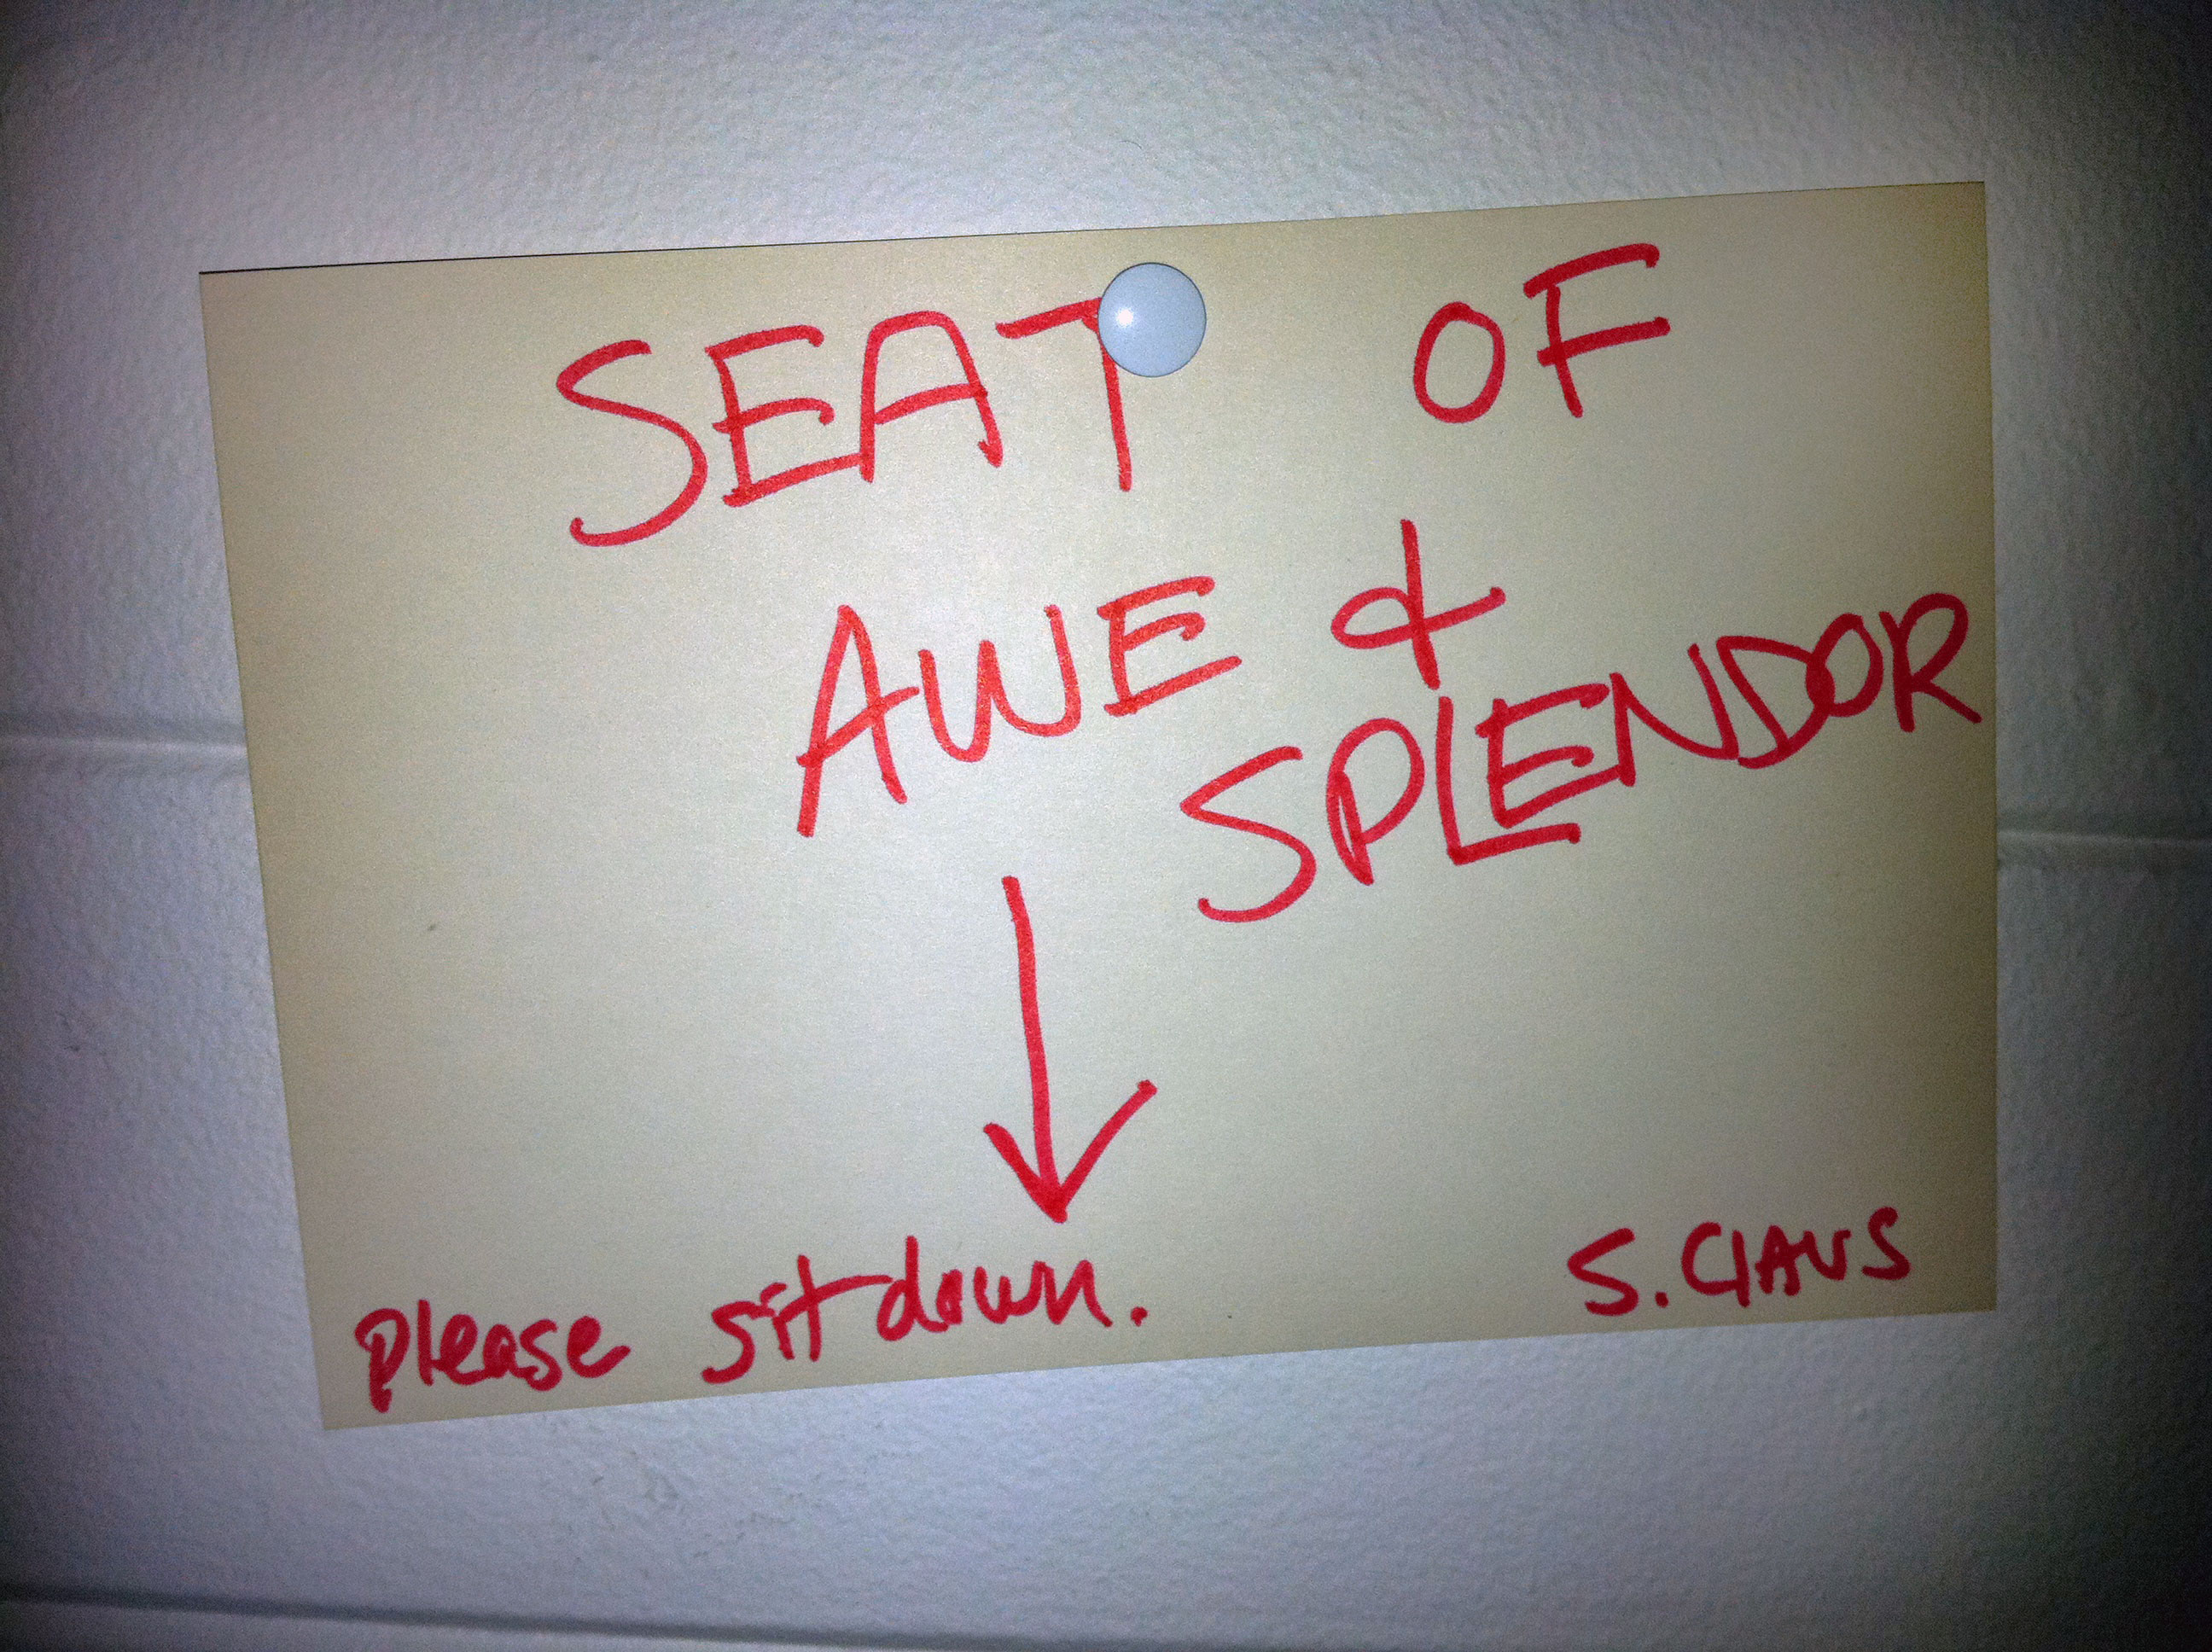 SEAT OF
AWE &
SPLENDOR
please sit down.
S. Claus